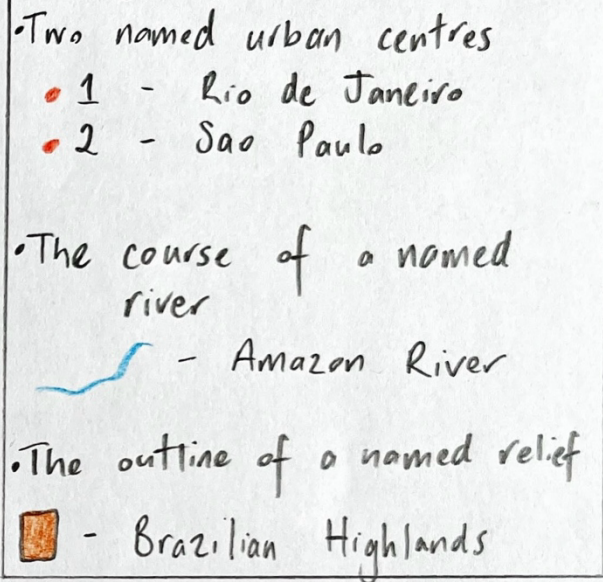 •Two named urban centres
• 1 - Rio de Janeiro
• 2 - Sao Paulo
•The course of a named
river
- Amazon River
•The outline of a named relief
- Brazilian Highlands